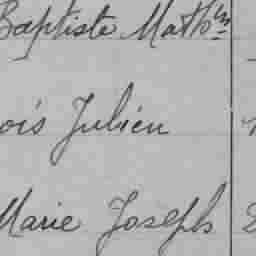 Baptiste Math^in
ois Julien
Marie Joseph